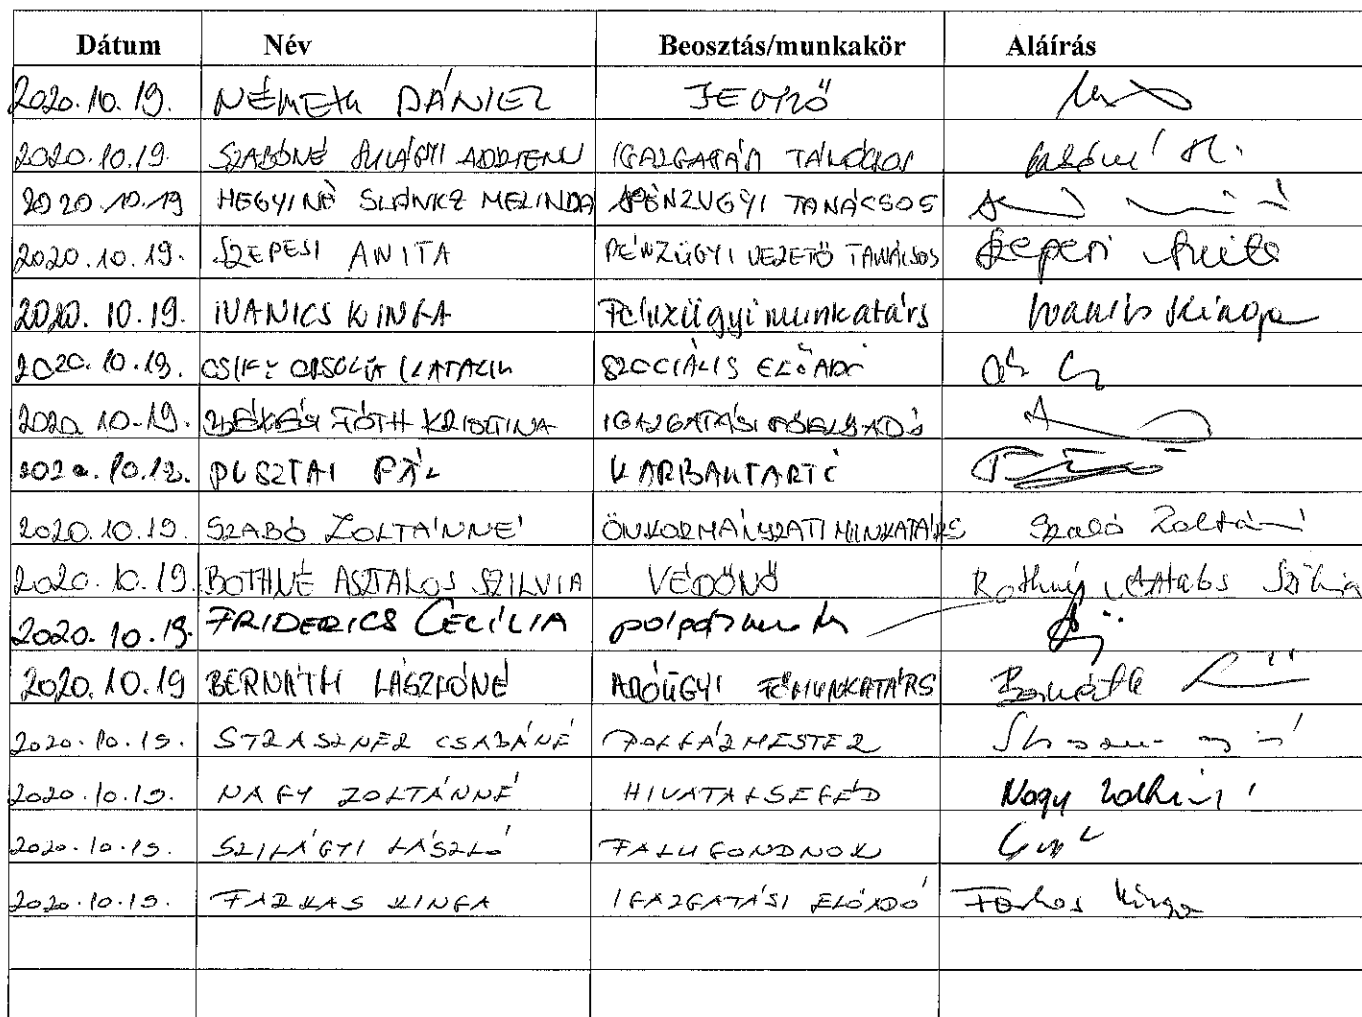 Dátum Név Beosztás/munkakör Aláírás
2020.10.19. NÉMETH DÁNIEL JEGYZŐ
2020.10.19. SZABÓNÉ ADRIENN IGAZGATÁSI TANÁCSOS
2020.10.19 HEGYINÉ SLÁNICZ MELINDA PÉNZÜGYI TANÁCSOS
2020.10.19. SZEPESI ANITA PÉNZÜGYI VEZETŐ TANÁCSOS Szepesi Anita
2020.10.19. IVANICS KINGA Pénzügyi munkatárs Ivanics Kinga
2020.10.19. ORSOLYA KATALIN SZOCIÁLIS ELŐADÓ
2020.10.19. TÓTH KRISZTINA IGAZGATÁSI FŐELŐADÓ
2020.10.12. PUSZTAI PÁL KARBANTARTÓ
2020.10.19. SZABÓ ZOLTÁNNÉ ÖNKORMÁNYZATI MUNKATÁRS Szabó Zoltánné
2020.10.19. BOTHNÉ ASZTALOS SZILVIA VÉDŐNŐ Bothné Asztalos Szilvia
2020.10.19. FRIDERICS CECÍLIA polgármester
2020.10.19 BERNÁTH LÁSZLÓNÉ ADÓÜGYI FŐMUNKATÁRS Bernáth
2020.10.19. STRASZNER CSABÁNÉ POLGÁRMESTER
2020.10.19. NAGY ZOLTÁNNÉ HIVATALSEGÉD Nagy Zoltánné
2020.10.19. SZILÁGYI LÁSZLÓ FALUGONDNOK
2020.10.19. FARKAS KINGA IGAZGATÁSI ELŐADÓ Farkas Kinga